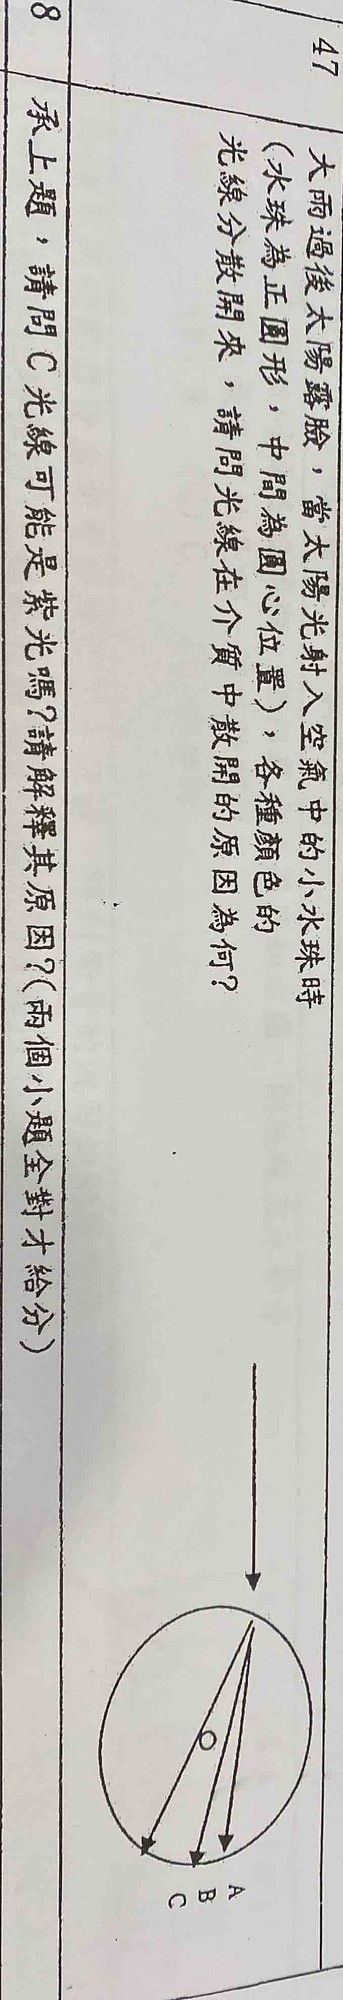 47
大雨過後太陽露臉，當太陽光射入空氣中的小水珠時
（水珠為正圓形，中間為圓心位置），各種顏色的
光線分散開來，請問光線在介質中散開的原因為何？
A
B
C
8
承上題，請問C光線可能是紫光嗎？請解釋其原因？（兩個小題全對才給分）